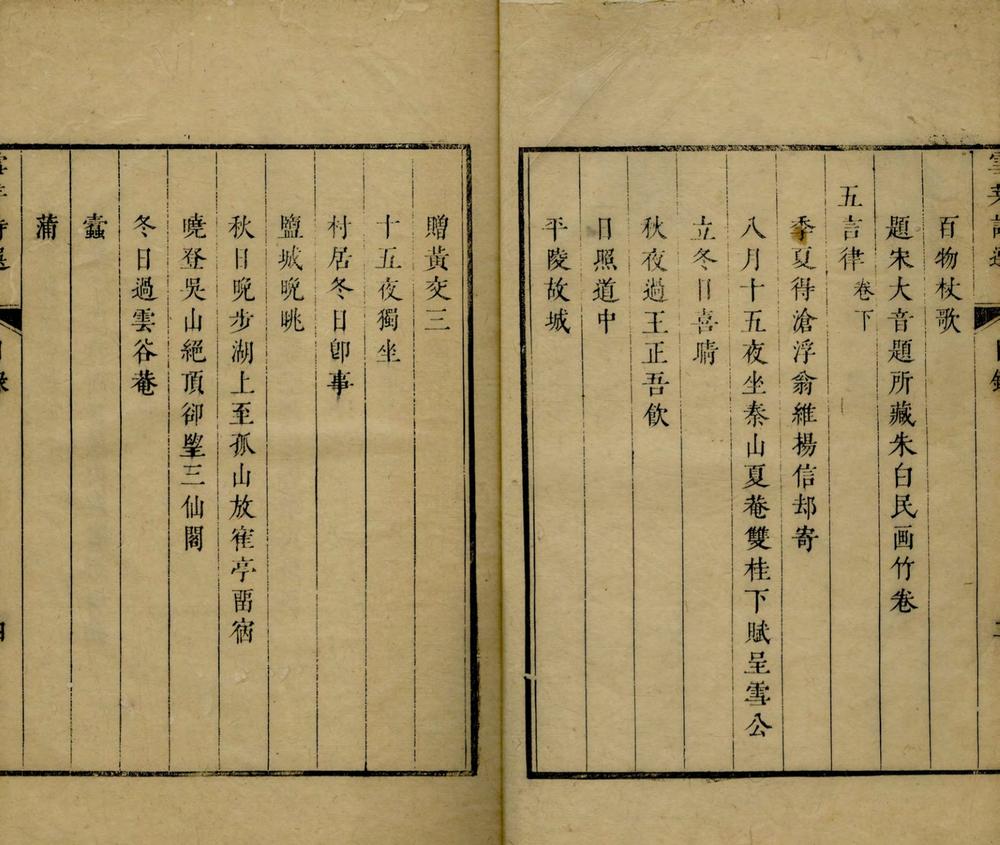 百物杖歌
題宋大音題所藏朱白民画竹卷
五言律 卷下
季夏得滄浮翁維揚信却寄
八月十五夜坐秦山夏菴雙桂下賦呈雪公
立冬日喜晴
秋夜過王正吾飲
日照道中
平陵故城
贈黃交三
十五夜獨坐
村居冬日卽事
鹽城晚眺
秋日晚步湖上至孤山放隺亭畱宿
曉登吳山絕頂卻望三仙閣
冬日過雲谷菴
蠹
蒲